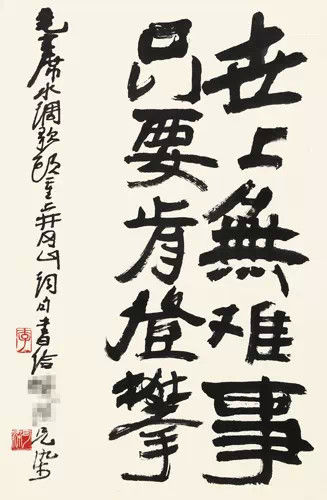 世上無难事
只要肯登攀
毛主席水调歌头重上井冈山词句书给 可染